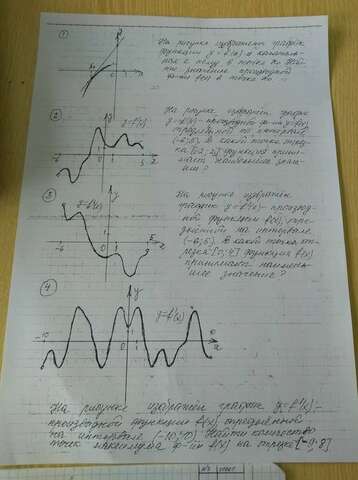 1
y
На рисунке изображены график
функции y = f(x) и касатель-
ная к нему в точке x₀. Най-
ти значение производной
ф-ии f(x) в точке x₀
x₀
0
2
y=f'(x)
На рисунке изображён график
y=f'(x) - производной ф-ии y=f(x),
определённой на интервале
(-6;5). В какой точке отрез-
ка функция прини-
мает наибольшее значе-
ние?
-6
0
1
5
x
3
y=f'(x)
y
На рисунке изображён
график y=f'(x) - производ-
ной функции f(x), опре-
делённой на интервале
(-6;5). В какой точке от-
резка [0;4] функция f(x)
принимает наимень-
шее значение?
-6
0
1
5
x
4
y
y=f'(x)
-10
0
1
x
На рисунке изображён график y=f'(x)-
производной функции f(x), определённой
на интервале Найти количество
точек ф-ии f(x) на отрезке [-9;8]